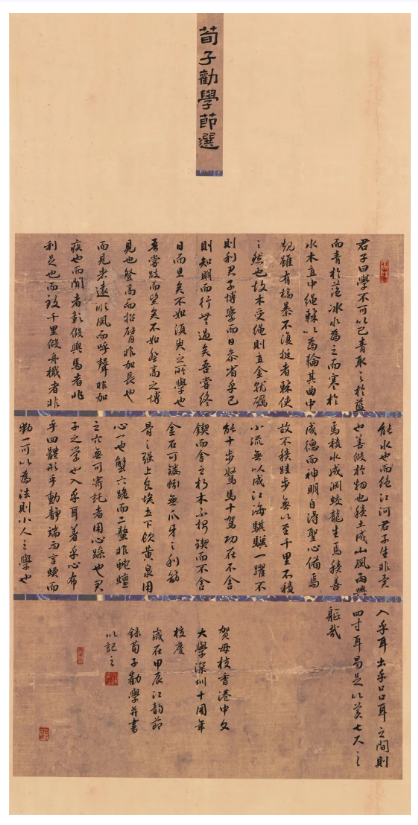 荀子勸學節選
君子曰學不可以已青取之於藍
而青於藍冰水為之而寒於
水木直中繩輮以為輪其曲中
規雖有槁暴不復挺者輮使
之然也故木受繩則直金就礪
則利君子博學而日參省乎己
則知明而行無過矣吾嘗終
日而思矣不如須臾之所學也
吾嘗跂而望矣不如登高之博
見也登高而招臂非加長也
而見者遠順風而呼聲非加
疾也而聞者彰假輿馬者非
利足也而致千里假舟楫者非
能水也而絕江河君子生非異
也善假於物也積土成山風雨興
焉積水成淵蛟龍生焉積善
成德而神明自得聖心備焉
故不積蹞步無以至千里不積
小流無以成江海騏驥一躍不
能十步駑馬十駕功在不舍
鍥而舍之朽木不折鍥而不舍
金石可鏤螾無爪牙之利筋
骨之強上食埃土下飲黃泉用
心一也蟹六跪而二螯非蛇蟺
之穴無可寄託者用心躁也君
子之學也入乎耳著乎心布
乎四體形乎動靜端而言蝡而
動一可以為法則小人之學也
入乎耳出乎口口耳之間則
四寸耳曷足以美七尺之
軀哉
賀母校香港中文
大學深圳十周年
校慶
歲在甲辰江韵
錄荀子勸學並書
以記之